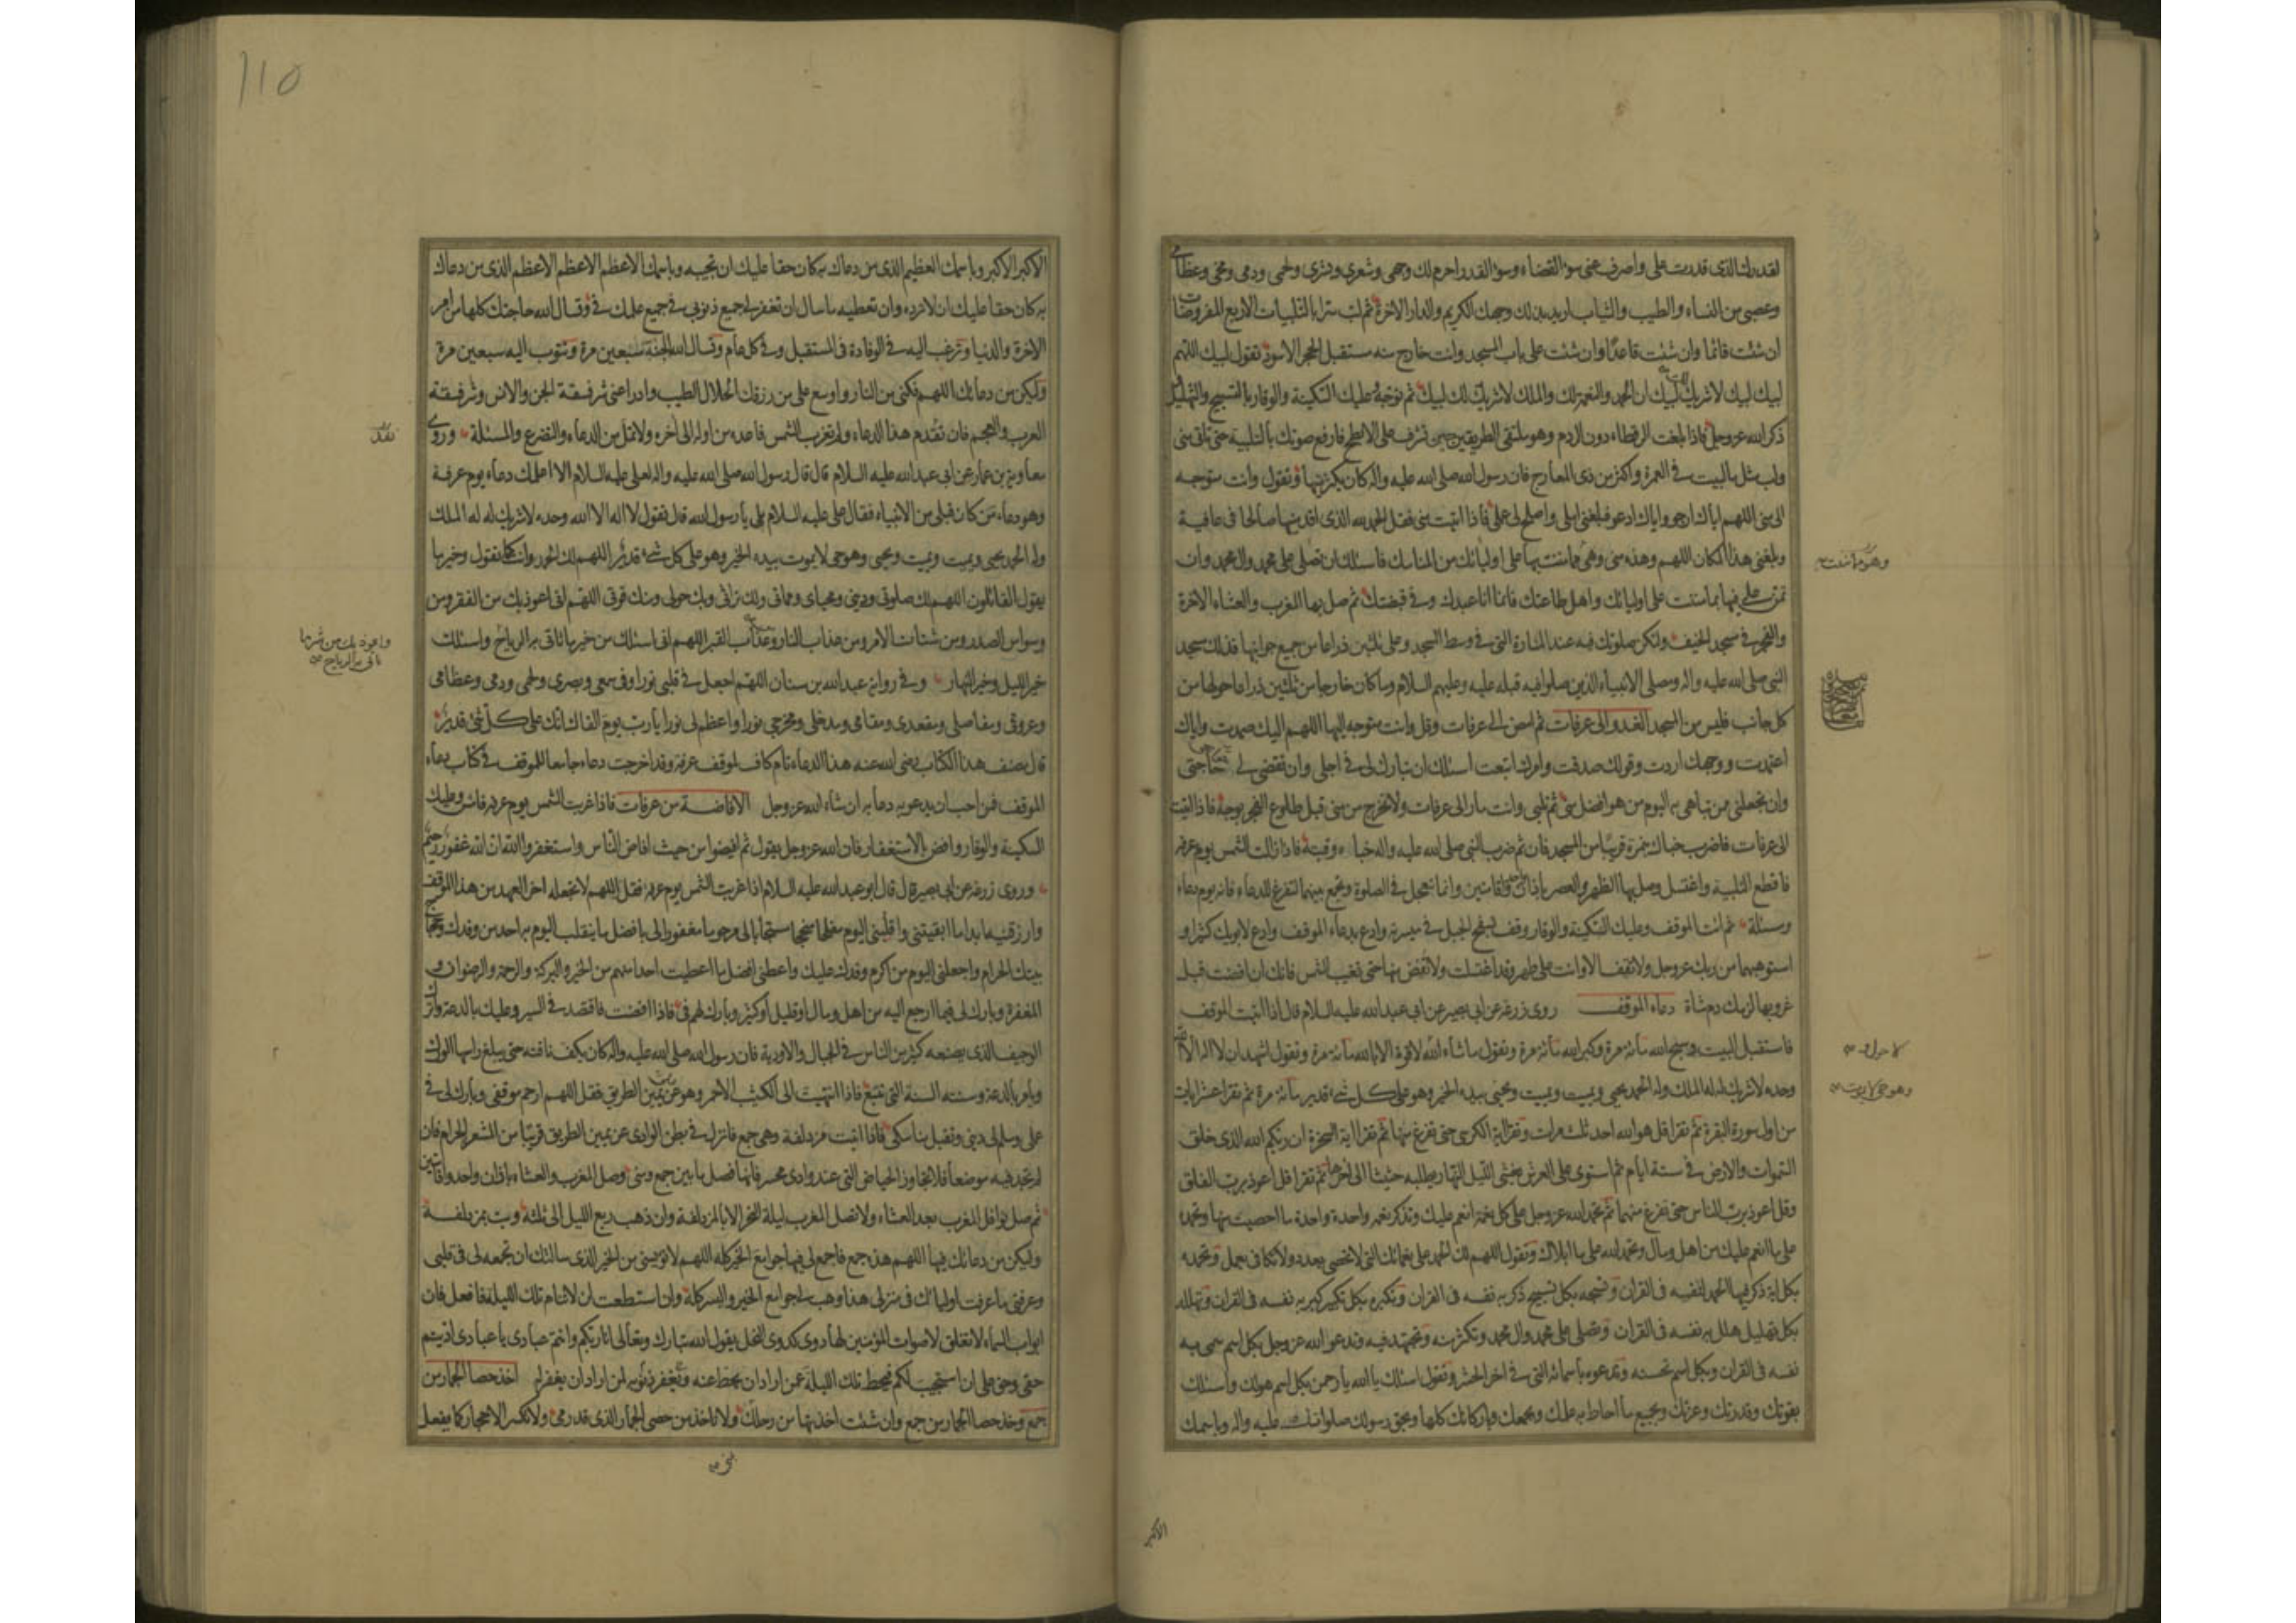 لقدرك الذى قدرت على واصرف عنى سوء القضاء وسوء القدر احرم لك وجهى وشعرى وبشرى ولحمى ودمى ومخى وعظامى
وعصبى من النساء والطيب والثياب اريد بذلك وجهك الكريم والدار الاخرة ثم لب سرا بالتلبيات الاربع المفروضات
ان شئت قائما وان شئت قاعدا وان شئت على باب المسجد وانت خارج منه مستقبل الحجر الاسود تقول لبيك اللهم
لبيك لبيك لاشريك لك لبيك ان الحمد والنعمة لك والملك لاشريك لك لبيك ثم توجه وعليك السكينة والوقار بالتسبيح والتهليل
ذكر الله عز وجل فاذا بلغت الرقطاء دون الردم وهو ملتقى الطريقين حين تشرف على الابطح فارفع صوتك بالتلبية حتى تاتى منى
ولب مثل ما لبيت فى العمرة واكثر من ذى المعارج فان رسول الله صلى الله عليه واله كان يكثر منها وتقول وانت متوجه
الى منى اللهم اياك ارجو واياك ادعو فبلغنى املى واصلح لى عملى فاذا اتيت منى فقل الحمد لله الذى اقدمنيها صالحا فى عافية
وبلغنى هذا المكان اللهم وهذه منى وهى مما مننت بها على اوليائك من المناسك فاسئلك ان تصلى على محمد وال محمد وان
تمن على فيها بما مننت على اوليائك واهل طاعتك فانما انا عبدك وفى قبضتك ثم صل بها المغرب والعشاء الاخرة
والفجر فى مسجد الخيف ولتكن صلوتك فيه عند المنارة التى فى وسط المسجد وعلى ثلثين ذراعا من جميع جوانبها فذلك مسجد
النبى صلى الله عليه واله ومصلى الانبياء الذين صلوا فيه قبله عليه وعليهم السلام وما كان خارجا من ثلثين ذراعا حولها من
كل جانب فليس من المسجد الغدو الى عرفات ثم امض الى عرفات وقل وانت متوجه اليها اللهم اليك صمدت واياك
اعتمدت ووجهك اردت وقولك صدقت وامرك اتبعت اسئلك ان تبارك لى فى اجلى وان تقضى لى حاجتى
وان تجعلنى ممن تباهى به اليوم من هو افضل منى ثم تلبى وانت مار الى عرفات ولاتخرج من منى قبل طلوع الفجر بوجه فاذا اتيت
الى عرفات فاضرب خباك بنمرة قريبا من المسجد فان ثم ضرب النبى صلى الله عليه واله خباءه وقبته فاذا زالت الشمس يوم عرفة
فاقطع التلبية واغتسل وصل بها الظهر والعصر باذان واحد واقامتين وانما تعجل فى الصلوة وتجمع بينهما لتفرغ للدعاء فانه يوم دعاء
ومسئلة ثم ائت الموقف وعليك السكينة والوقار وقف بسفح الجبل فى ميسرته وادع بدعاء الموقف وادع لابويك كثيرا و
استوهبهما من ربك عز وجل ولاتقف الا وانت على طهر وقد اغتسلت ولاتفض منها حتى تغيب الشمس فانك ان افضت قبل
غروبها لزمك دم شاة دعاء الموقف روى زرعة عن ابى بصير عن ابى عبد الله عليه السلام قال اذا اتيت الموقف
فاستقبل البيت وسبح الله مائة مرة وكبر الله مائة مرة وتقول ما شاء الله لاقوة الا بالله مائة مرة وتقول اشهد ان لا اله الا الله
وحده لاشريك له له الملك وله الحمد يحيى ويميت ويميت ويحيى بيده الخير وهو على كل شىء قدير مائة مرة ثم تقرا عشر ايات
من اول سورة البقرة ثم تقرا قل هو الله احد ثلث مرات وتقرا اية الكرسى حتى تفرغ منها ثم تقرا اية السخرة ان ربكم الله الذى خلق
السموات والارض فى ستة ايام ثم استوى على العرش يغشى الليل النهار يطلبه حثيثا الى اخرها ثم تقرا قل اعوذ برب الفلق
وقل اعوذ برب الناس حتى تفرغ منهما ثم تحمد الله عز وجل على كل نعمة انعم عليك وتذكر نعمه واحدة واحدة ما احصيت منها وتحمده
على ما انعم عليك من اهل ومال وتحمد الله على ما ابلاك وتقول اللهم لك الحمد على نعمائك التى لاتحصى بعدد ولاتكافى بعمل وتحمده
بكل اية ذكر فيها الحمد لنفسه فى القران وتسبحه بكل تسبيح ذكر به نفسه فى القران وتكبره بكل تكبير كبر به نفسه فى القران وتهلله
بكل تهليل هلل به نفسه فى القران وتصلى على محمد وال محمد وتكثر منه وتجتهد فيه وتدعو الله عز وجل بكل اسم سمى به
نفسه فى القران وبكل اسم تحسنه وتدعوه باسمائه التى فى اخر الحشر وتقول اسئلك يا الله يا رحمن بكل اسم هو لك واسئلك
بقوتك وقدرتك وعزتك وبجميع ما احاط به علمك وبجمعك وباركانك كلها وبحق رسولك صلواتك عليه واله وباسمك
وهو مما مننت
لا حول و
وهو حى لا يموت
الاكبر
110
الاكبر الاكبر وباسمك العظيم الذى من دعاك به كان حقا عليك ان تجيبه وباسمك الاعظم الاعظم الاعظم الذى من دعاك
به كان حقا عليك ان لاترده وان تعطيه ما سال ان تغفر لى جميع ذنوبى فى جميع علمك فى وتسال الله حاجتك كلها من امر
الاخرة والدنيا وترغب اليه فى الوفادة فى المستقبل وفى كل عام وتسال الله الجنة سبعين مرة وتتوب اليه سبعين مرة
وليكن من دعائك اللهم فكنى من النار واوسع على من رزقك الحلال الطيب وادرا عنى شر فسقة الجن والانس وشر فسقة
العرب والعجم فان نفد هذا الدعاء ولم تغرب الشمس فاعده من اوله الى اخره ولاتمل من الدعاء والتضرع والمسئلة وروى
معاوية بن عمار عن ابى عبد الله عليه السلام قال قال رسول الله صلى الله عليه واله لعلى عليه السلام الا اعلمك دعاء يوم عرفة
وهو دعاء من كان قبلى من الانبياء فقال على عليه السلام بلى يا رسول الله قال تقول لا اله الا الله وحده لاشريك له له الملك
وله الحمد يحيى ويميت ويميت ويحيى وهو حى لايموت بيده الخير وهو على كل شىء قدير اللهم لك الحمد وانت كما تقول وخير ما
يقول القائلون اللهم لك صلوتى ودينى ومحياى ومماتى ولك تراثى وبك حولى ومنك قوتى اللهم انى اعوذ بك من الفقر ومن
وسواس الصدر ومن شتات الامر ومن عذاب النار ومن عذاب القبر اللهم انى اسئلك من خير ما تاتى به الرياح واسئلك
خير الليل وخير النهار وفى رواية عبد الله بن سنان اللهم اجعل فى قلبى نورا وفى سمعى وبصرى ولحمى ودمى وعظامى
وعروقى ومفاصلى ومقعدى ومقامى ومدخلى ومخرجى نورا واعظم لى نورا يا رب يوم القاك انك على كل شىء قدير
قال مصنف هذا الكتاب رضى الله عنه هذا الدعاء تام كاف لموقف عرفة وقد اخرجت دعاء جامعا للموقف فى كتاب دعاء
الموقف فمن احب ان يدعو به دعا به ان شاء الله عز وجل الافاضة من عرفات فاذا غربت الشمس يوم عرفة فامش وعليك
السكينة والوقار وافض بالاستغفار فان الله عز وجل يقول ثم افيضوا من حيث افاض الناس واستغفروا الله ان الله غفور رحيم
وروى زرعة عن ابى بصير قال قال ابو عبد الله عليه السلام اذا غربت الشمس يوم عرفة فقل اللهم لاتجعله اخر العهد من هذا الموقف
وارزقنيه ابدا ما ابقيتنى واقلبنى اليوم مفلحا منجحا مستجابا لى مرحوما مغفورا لى بافضل ما ينقلب اليوم به احد من وفدك وحجاج
بيتك الحرام واجعلنى اليوم من اكرم وفدك عليك واعطنى افضل ما اعطيت احدا منهم من الخير والبركة والرحمة والرضوان و
المغفرة وبارك لى فيما ارجع اليه من اهل ومال او قليل او كثير وبارك لهم فى فاذا افضت فاقتصد فى السير وعليك بالدعة واترك
الوجيف الذى يصنعه كثير من الناس فى الجبال والاودية فان رسول الله صلى الله عليه واله كان يكف ناقته حتى يبلغ راسها الورك
ويامر بالدعة وسنته السنة التى تتبع فاذا انتهيت الى الكثيب الاحمر وهو عن يمين الطريق فقل اللهم ارحم موقفى وبارك لى فى
عملى وسلم لى دينى وتقبل مناسكى فاذا اتيت مزدلفة وهى جمع فانزل فى بطن الوادى عن يمين الطريق قريبا من المشعر الحرام فان
لم تجد فيه موضعا فلاتجاوز الحياض التى عند وادى محسر فانها فصل ما بين جمع ومنى وصل المغرب والعشاء باذان واحد واقامتين
ثم صل نوافل المغرب بعد العشاء ولاتصل المغرب ليلة النحر الا بالمزدلفة وان ذهب ربع الليل الى ثلثه وبت بمزدلفة
وليكن من دعائك فيها اللهم هذه جمع فاجمع لى فيها جوامع الخير كله اللهم لاتويسنى من الخير الذى سالتك ان تجمعه لى فى قلبى
وعرفنى ما عرفت اوليائك فى منزلى هذا وهب لى جوامع الخير واليسر كله وان استطعت ان لاتنام تلك الليلة فافعل فان
ابواب السماء لاتغلق لاصوات المؤمنين لها دوى كدوى النحل يقول الله تبارك وتعالى انا ربكم وانتم عبادى يا عبادى اديتم
حقى وحق على ان استجيب لكم فيحط تلك الليلة عمن اراد ان يحط عنه ويغفر ذنوبه لمن اراد ان يغفر له اخذ حصا الجمار من
جمع وخذ حصا الجمار من جمع وان شئت اخذتها من رحلك ولاتاخذ من حصى الجمار الذى قد رمى ولاتكسر الاحجار كما يفعل
نفد
واعوذ بك من شر ما
تاتى به الرياح